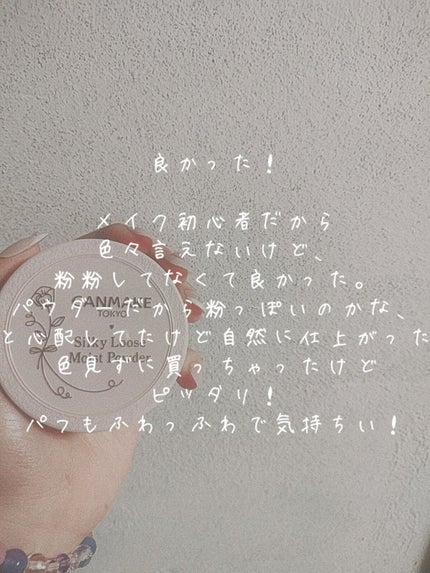 良かった!
メイク初心者だから
色々言えないけど、
粉粉してなくて良かった。
パウダーだから粉っぽいのかな、
と心配してたけど自然に仕上がった
色見ずに買っちゃったけど
ピッタリ!
パフもふわっふわで気持ちい!
CANMAKE
TOKYO
Silky Loose
Moist Powder